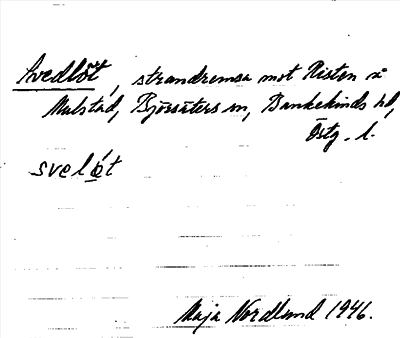 Svedlöt, strandremsa mot Risten å
Mulstad, Björsäters sn, Bankekinds hd,
Östg. l.
svelö́t
Maja Nordlund 1946.